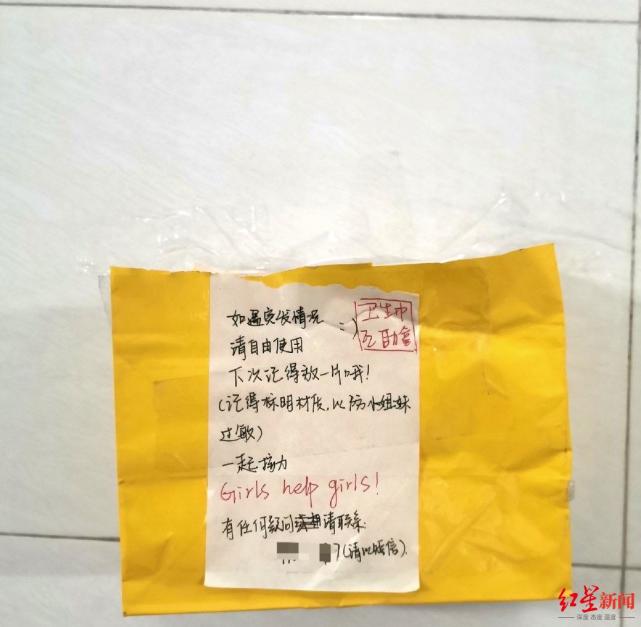 如遇突发情况 :)
卫生巾
互助盒
请自由使用
下次记得放一片哦!
(记得标明材质,以防小姐妹
过敏)
一起接力
Girls help girls!
有任何疑问请联系
7(请以短信)
红星新闻
深度 态度 温度